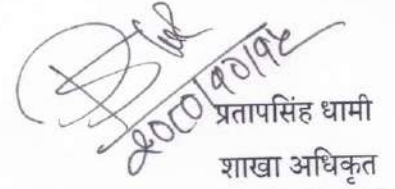 २०८०|१०|१५
प्रतापसिंह धामी
शाखा अधिकृत